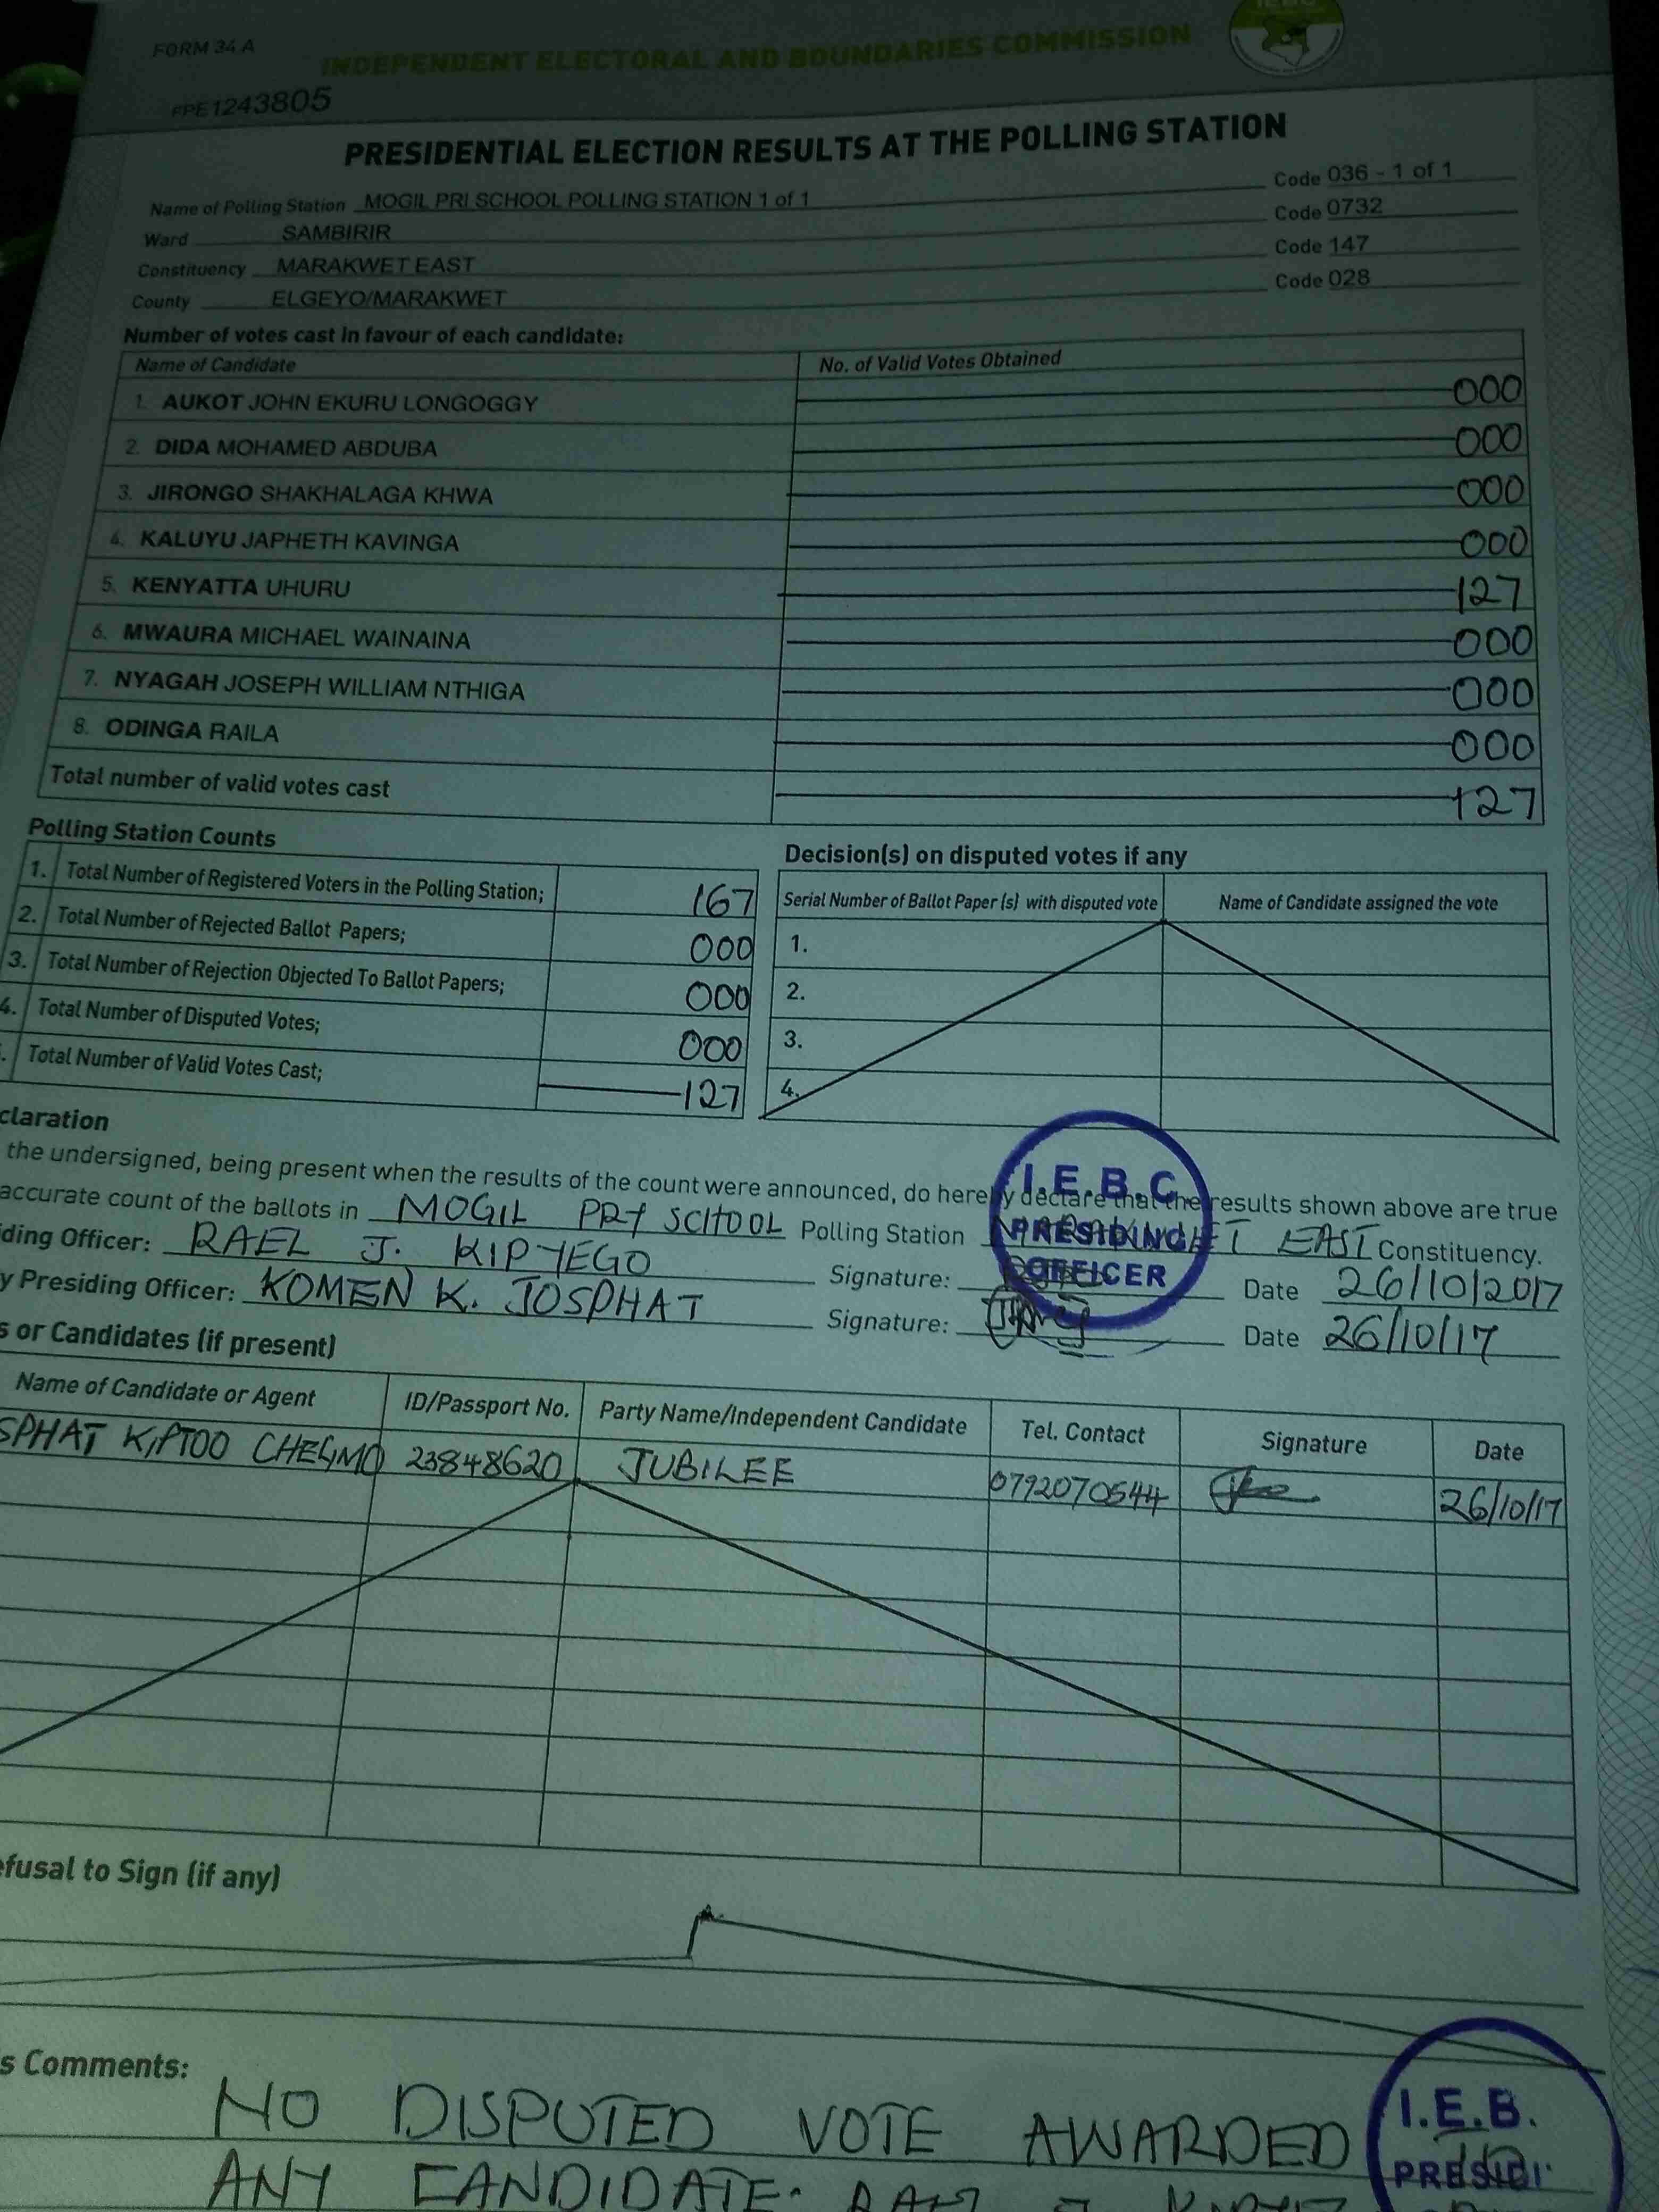 FORM 34 A
INDEPENDENT ELECTORAL AND BOUNDARIES COMMISSION
PPE1243805
PRESIDENTIAL ELECTION RESULTS AT THE POLLING STATION
Name of Polling Station MOGIL PRI SCHOOL POLLING STATION 1 of 1 Code 036 - 1 of 1
Ward SAMBIRIR Code 0732
Constituency MARAKWET EAST Code 147
County ELGEYO/MARAKWET Code 028
Number of votes cast in favour of each candidate:
Name of Candidate No. of Valid Votes Obtained
1. AUKOT JOHN EKURU LONGOGGY 000
2. DIDA MOHAMED ABDUBA 000
3. JIRONGO SHAKHALAGA KHWA 000
4. KALUYU JAPHETH KAVINGA 000
5. KENYATTA UHURU 127
6. MWAURA MICHAEL WAINAINA 000
7. NYAGAH JOSEPH WILLIAM NTHIGA 000
8. ODINGA RAILA 000
Total number of valid votes cast 127
Polling Station Counts
1. Total Number of Registered Voters in the Polling Station; 167
2. Total Number of Rejected Ballot Papers; 000
3. Total Number of Rejection Objected To Ballot Papers; 000
4. Total Number of Disputed Votes; 000
. Total Number of Valid Votes Cast; 127
Decision(s) on disputed votes if any
Serial Number of Ballot Paper (s) with disputed vote Name of Candidate assigned the vote
1.
2.
3.
4.
claration
the undersigned, being present when the results of the count were announced, do hereby declare that the results shown above are true
accurate count of the ballots in MOGIL PRY SCHOOL Polling Station MARAKWET EAST Constituency.
ding Officer: RAEL J. KIPYEGO Signature: Date 26/10/2017
y Presiding Officer: KOMEN K. JOSPHAT Signature: Date 26/10/17
I.E.B.C.
PRESIDING
OFFICER
s or Candidates (if present)
Name of Candidate or Agent ID/Passport No. Party Name/Independent Candidate Tel. Contact Signature Date
SPHAT KIPTOO CHEGMO 23848620 JUBILEE 0792070544 26/10/17
efusal to Sign (if any)
s Comments:
NO DISPUTED VOTE AWARDED
ANY CANDIDATE.
I.E.B.
PRESIDI